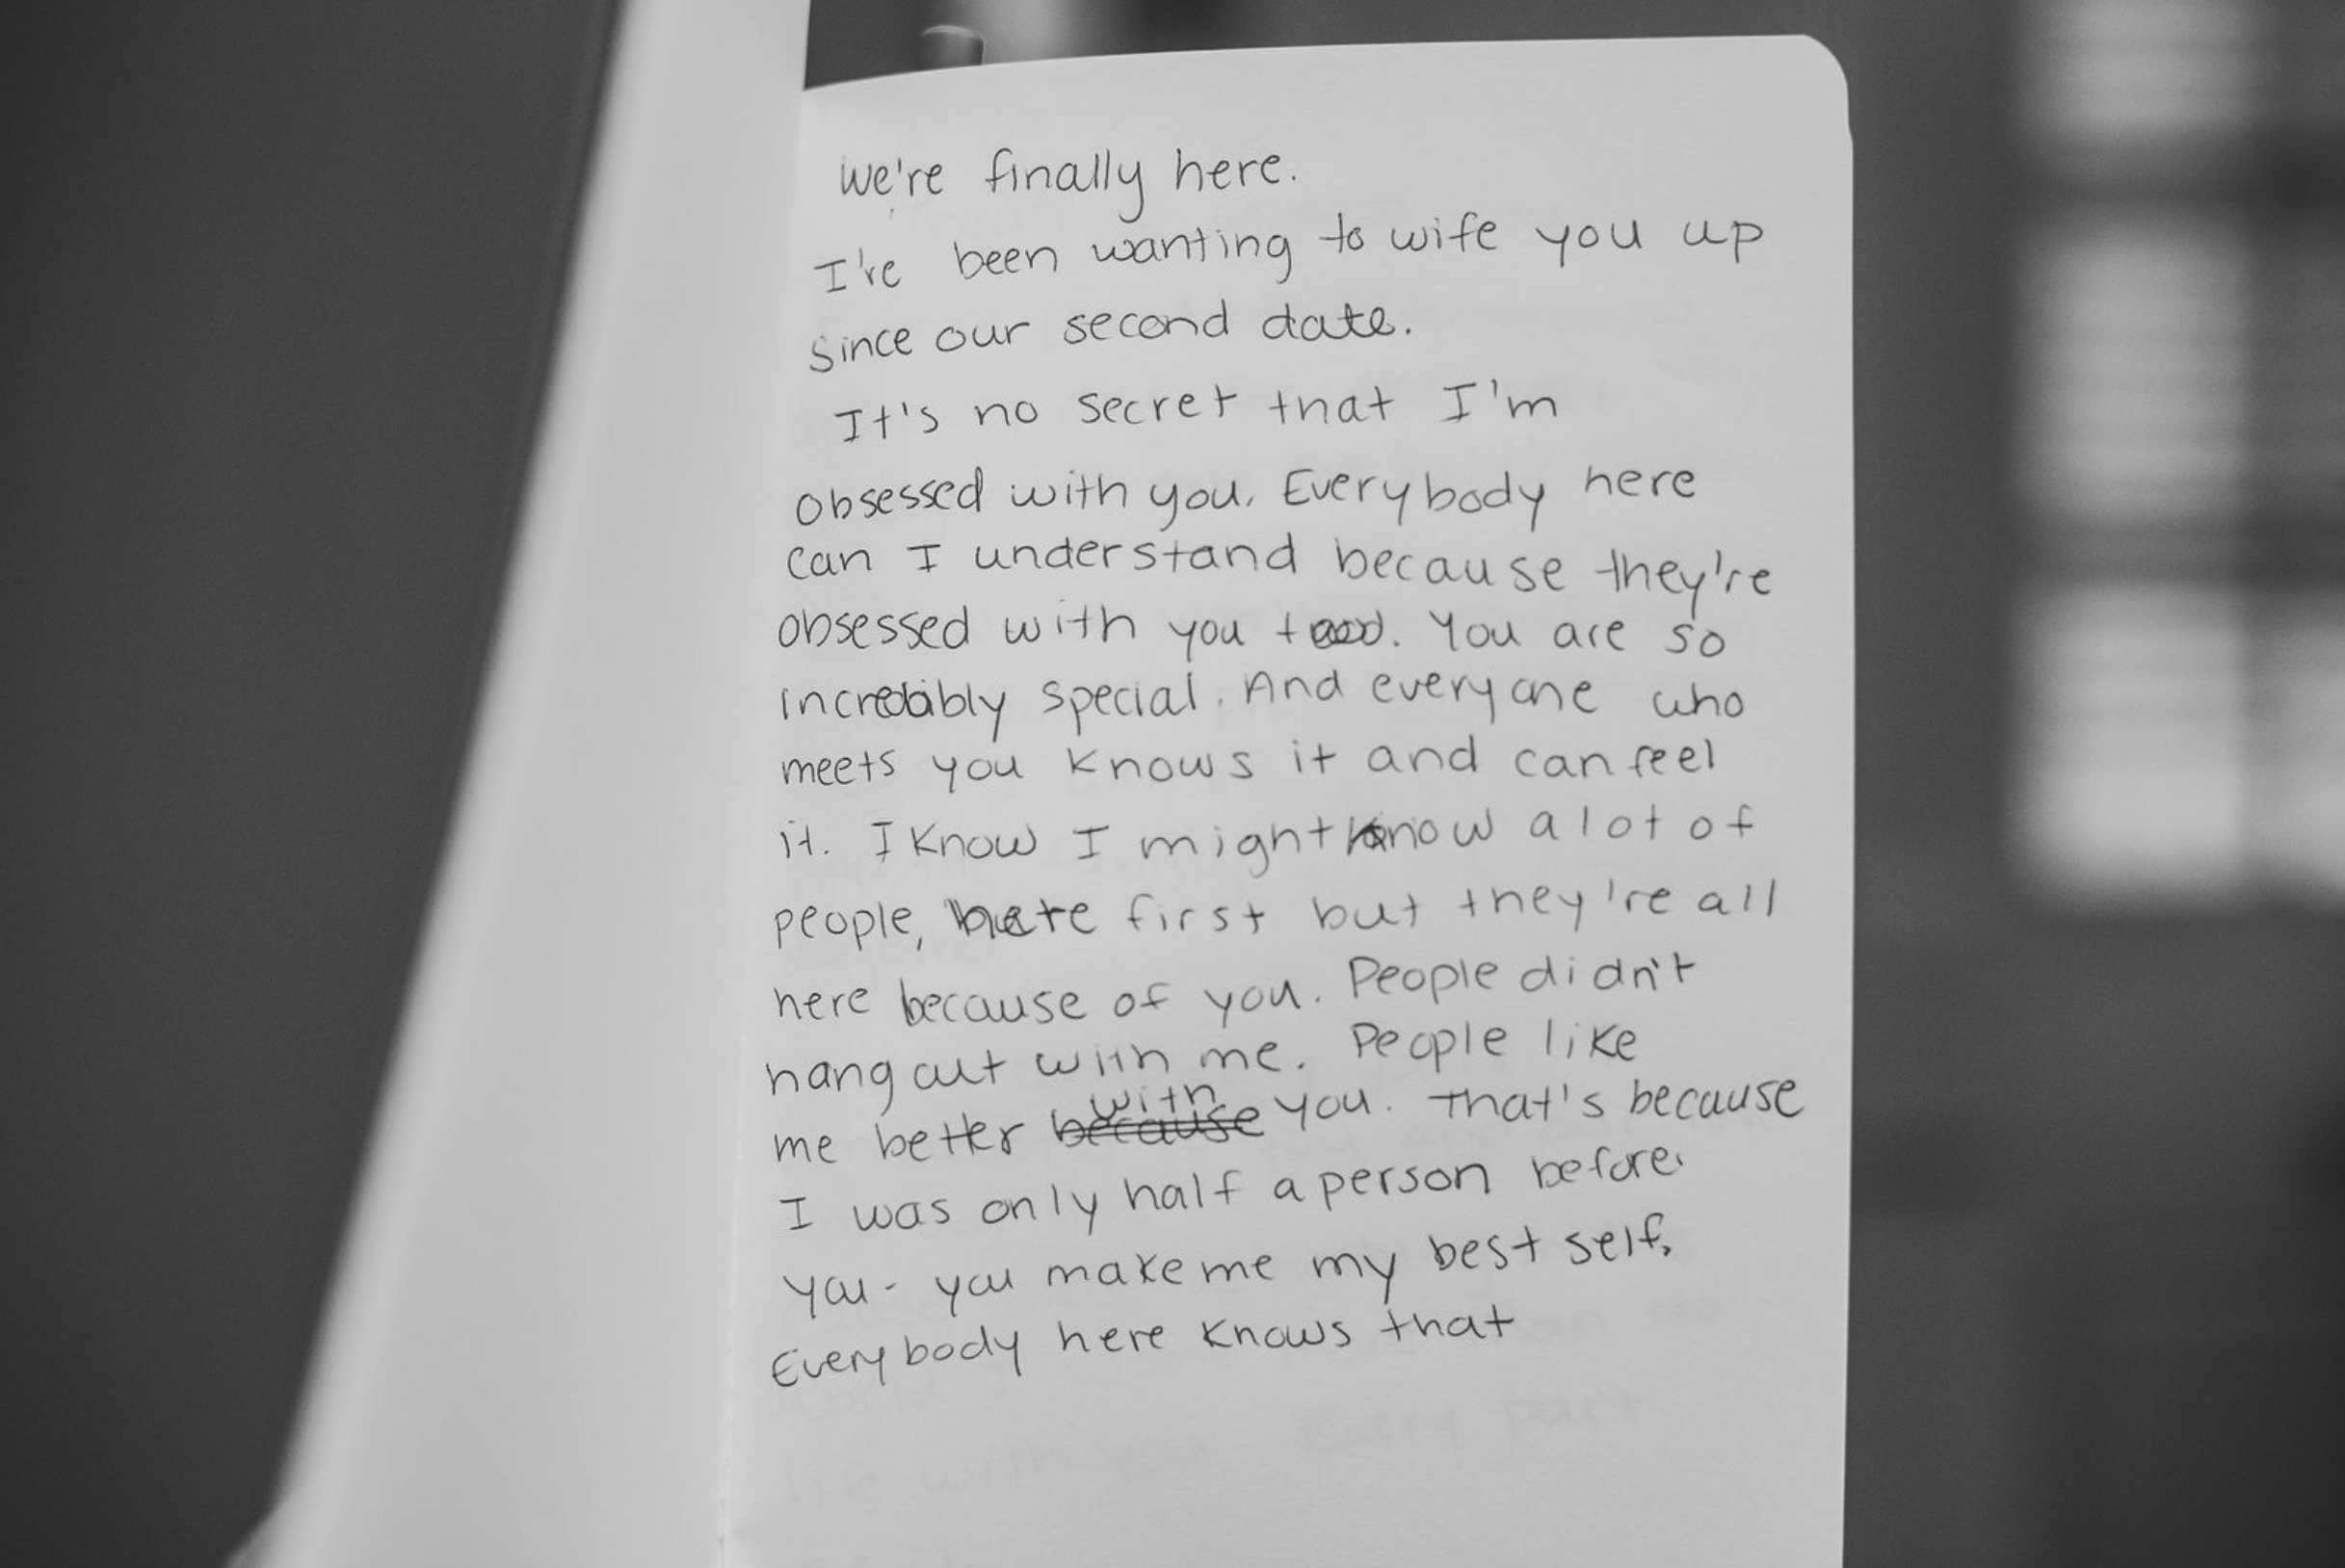 We're finally here.
I've been wanting to wife you up
since our second date.
It's no secret that I'm
obsessed with you. Everybody here
can I understand because they're
obsessed with you too. You are so
incredibly special. And everyone who
meets you knows it and can feel
it. I know I might know a lot of
people, here first but they're all
here because of you. People didn't
hang out with me. People like
me better because with you. That's because
I was only half a person before
you - you make me my best self.
Everybody here knows that